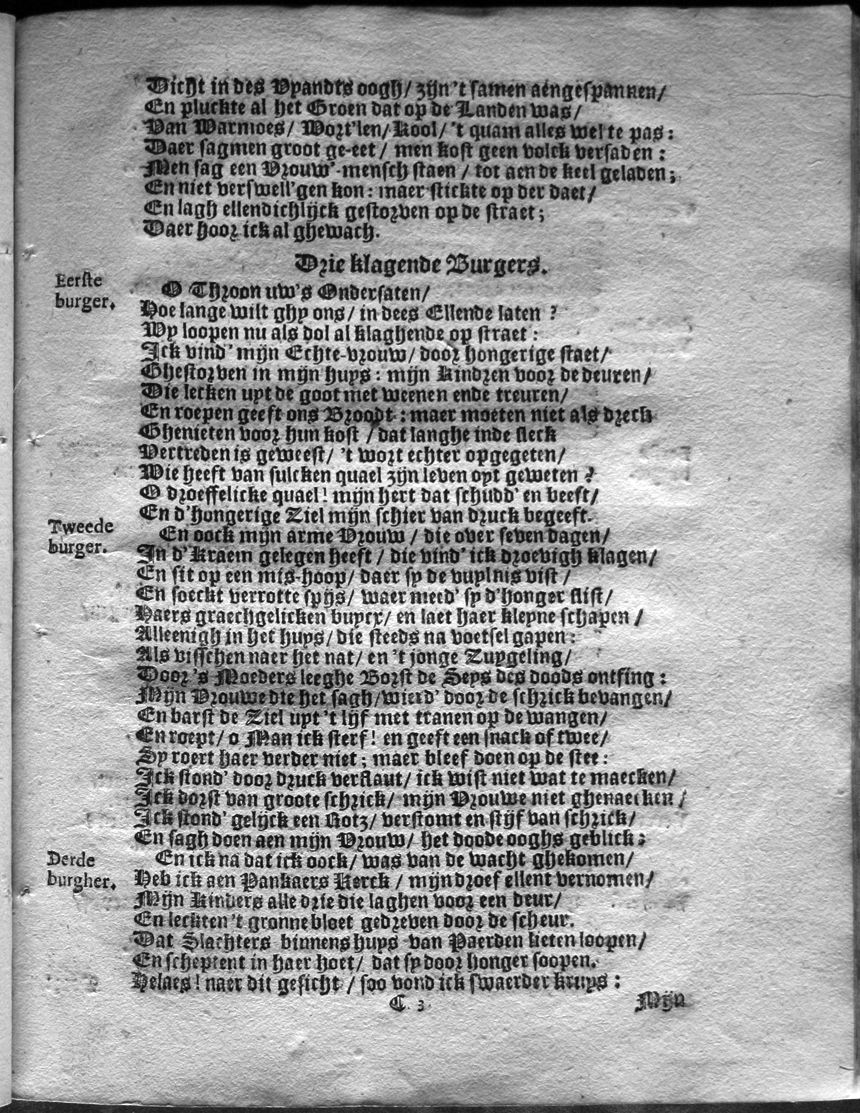 Dicht in des Vyandts oogh/ zijn 't samen aengespannen/
En pluckte al het Groen dat op de Landen was/
Van Warmoes/ Wort'len/ Kool/ 't quam alles wel te pas:
Daer sagmen groot ge-eet/ men kost geen volck versaden:
Men sag een Vrouw'-mensch staen/ tot aen de keel geladen;
En niet verswell'gen kon: maer stickte op der daet/
En lagh ellendichlijck gestorven op de straet;
Daer hoor ick al ghewach.
Drie klagende Burgers.
Eerste burger.
O Throon uw's Ondersaten/
Hoe lange wilt ghy ons/ in dees Ellende laten ?
Wy loopen nu als dol al klaghende op straet:
Ick vind' mijn Echte-vrouw/ door hongerige staet/
Ghestorven in mijn huys: mijn Kindren voor de deuren/
Die lecken uyt de goot met weenen ende treuren/
En roepen geeft ons Broodt: maer moeten niet als dreck
Ghenieten voor hun kost/ dat langhe inde sleck
Vertreden is geweest/ 't wort echter opgegeten/
Wie heeft van sulcken quael zijn leven oyt geweten ?
O droeffelicke quael! mijn hert dat schudd' en beeft/
En d'hongerige Ziel mijn schier van druck begeeft.
Tweede burger.
En oock mijn arme Vrouw/ die over seven dagen/
In d'Kraem gelegen heeft/ die vind' ick droevigh klagen/
En sit op een mis-hoop/ daer sy de vuylnis vist/
En soeckt verrotte spijs/ waer meed' sy d'honger slist/
Haers graechgelicken buycx/ en laet haer kleyne schapen/
Alleenigh in het huys/ die steeds na voetsel gapen:
Als visschen naer het nat/ en 't jonge Zuygeling/
Door 's Moeders leeghe Borst de Seys des doods ontfing:
Mijn Vrouwe die het sagh/ wierd' door de schrick bevangen/
En barst de Ziel uyt 't lijf met tranen op de wangen/
En roept/ o Man ick sterf! en geeft een snack of twee/
Sy roert haer verder niet; maer bleef doen op de stee:
Ick stond' door druck verflaut/ ick wist niet wat te maecken/
Ick dorst van groote schrick/ mijn Vrouwe niet ghenaecken/
Ick stond' gelijck een Rotz/ verstomt en stijf van schrick/
En sagh doen aen mijn Vrouw/ het doode ooghs geblick:
Derde burgher.
En ick na dat ick oock/ was van de wacht ghekomen/
Heb ick aen Pankaers Kerck/ mijn droef ellent vernomen/
Mijn Kinders alle drie die laghen voor een deur/
En leckten 't gronne bloet gedreven door de scheur.
Dat Slachters binnens huys van Paerden lieten loopen/
En scheptent in haer hoet/ dat sy door honger soopen.
Helaes! naer dit gesicht/ soo vond ick swaerder kruys:
C 3
Mijn